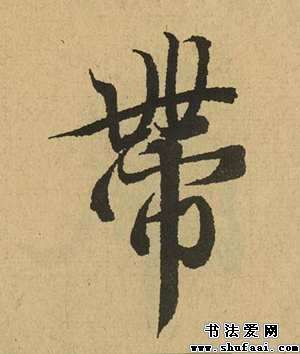 帶
书法爱网
www.shufaai.com